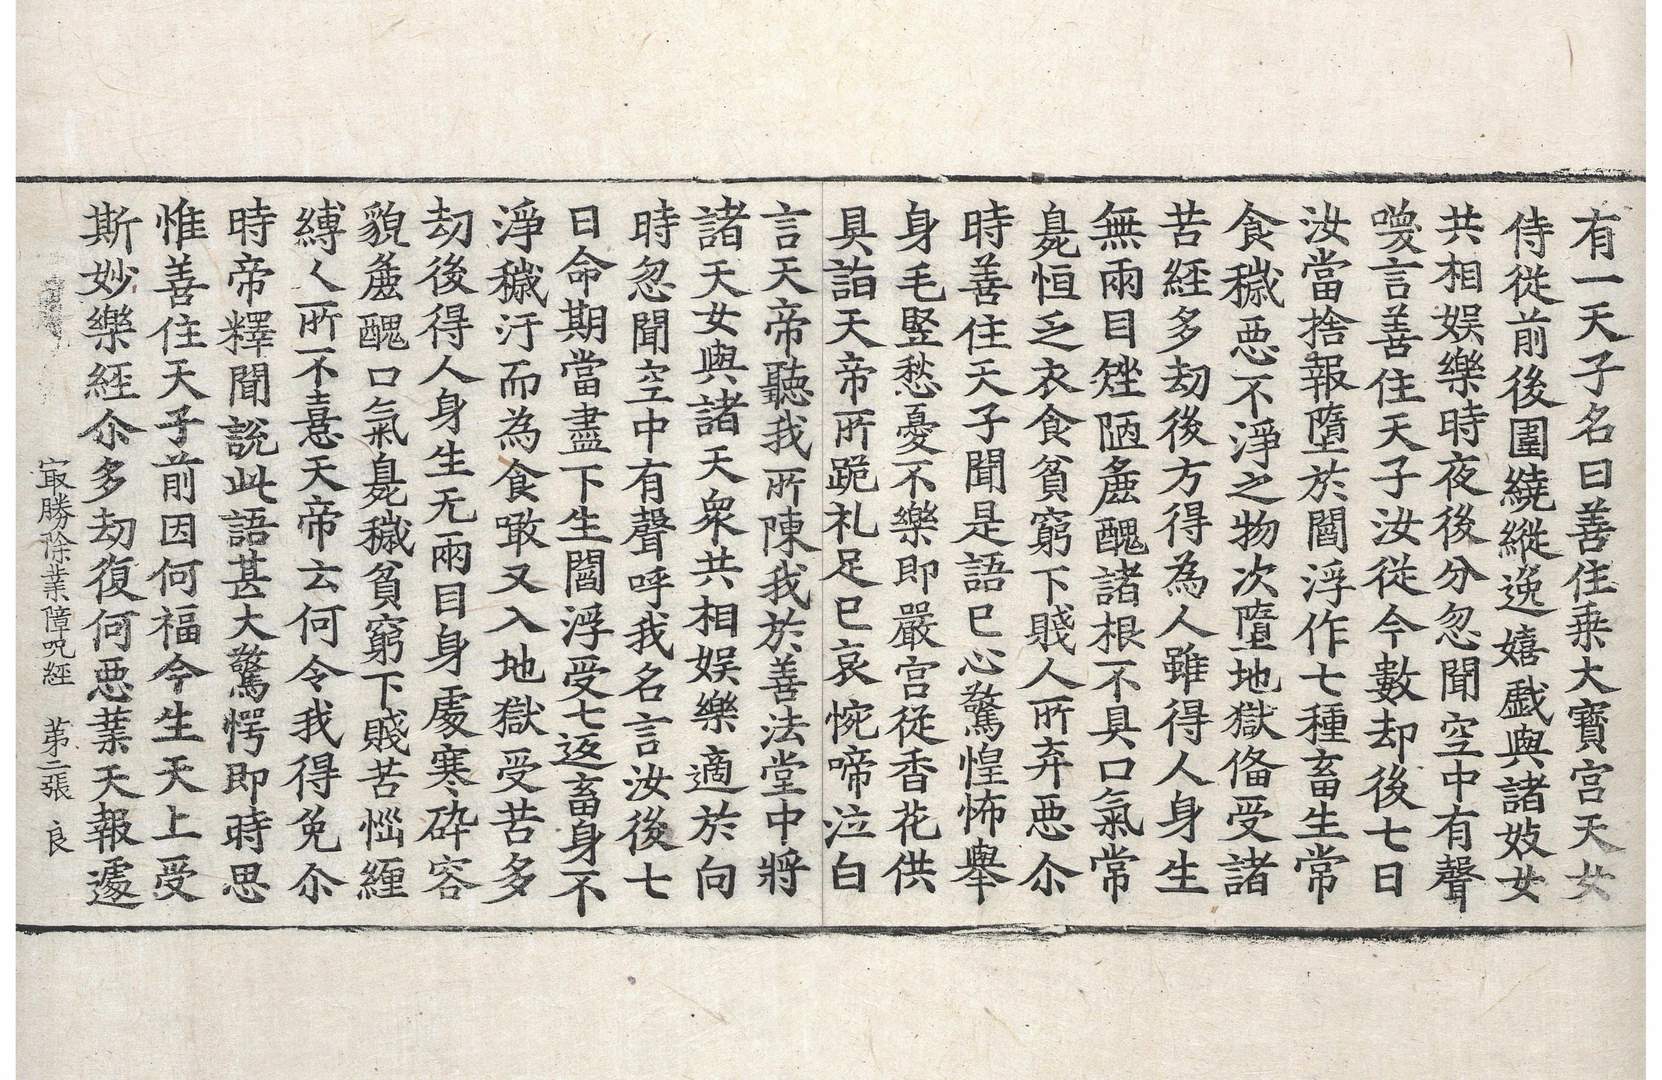 有一天子名曰善住乗大寶宮天女
侍從前後圍繞縱逸嬉戱與諸妓女
共相娛樂時夜後分忽聞空中有聲
嗳言善住天子汝從今數却後七日
汝當捨報墮於閻浮作七種畜生常
食穢惡不淨之物次墮地獄俻受諸
苦經多劫後方得為人雖得人身生
無兩目矬陋麁醜諸根不具口氣常
臰恒乏衣食貧窮下賤人所弃惡尒
時善住天子聞是語已心驚惶怖舉
身毛竪愁憂不樂即嚴宮從香花供
具詣天帝所跪礼足已哀惋啼泣白
言天帝聽我所陳我於善法堂中將
諸天女與諸天衆共相娛樂適於向
時忽聞空中有聲呼我名言汝後七
日命期當盡下生閻浮受七返畜身不
淨穢汙而為食噉又入地獄受苦多
劫後得人身生无兩目身處寒碎容
貌麁醜口氣臰穢貧窮下賤苦惱纏
縛人所不憙天帝云何令我得免尒
時帝釋聞說此語甚大驚愕即時思
惟善住天子前因何福今生天上受
斯妙樂經尒多劫復何惡業天報遽
冣勝除業障呪經 苐二張 良